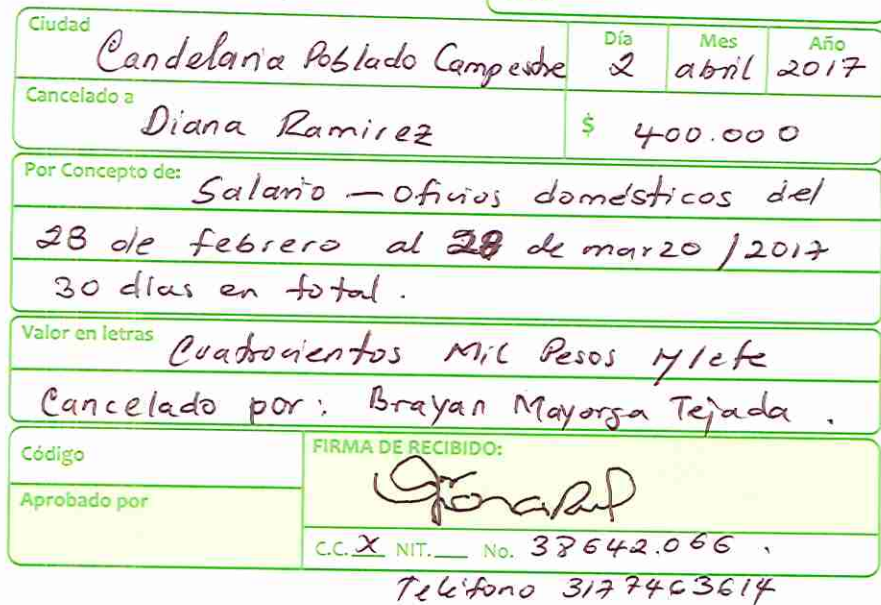 Ciudad Día Mes Año
Candelaria Poblado Campestre 2 abril 2017
Cancelado a
Diana Ramirez $ 400.000
Por Concepto de:
Salario — Oficios domésticos del
28 de febrero al 28 de marzo / 2017
30 días en total.
Valor en letras
Cuatrocientos Mil Pesos M/cte
Cancelado por: Brayan Mayorga Tejada.
Código FIRMA DE RECIBIDO:
Aprobado por
C.C. X NIT.___ No. 38642.066.
Teléfono 3177463614